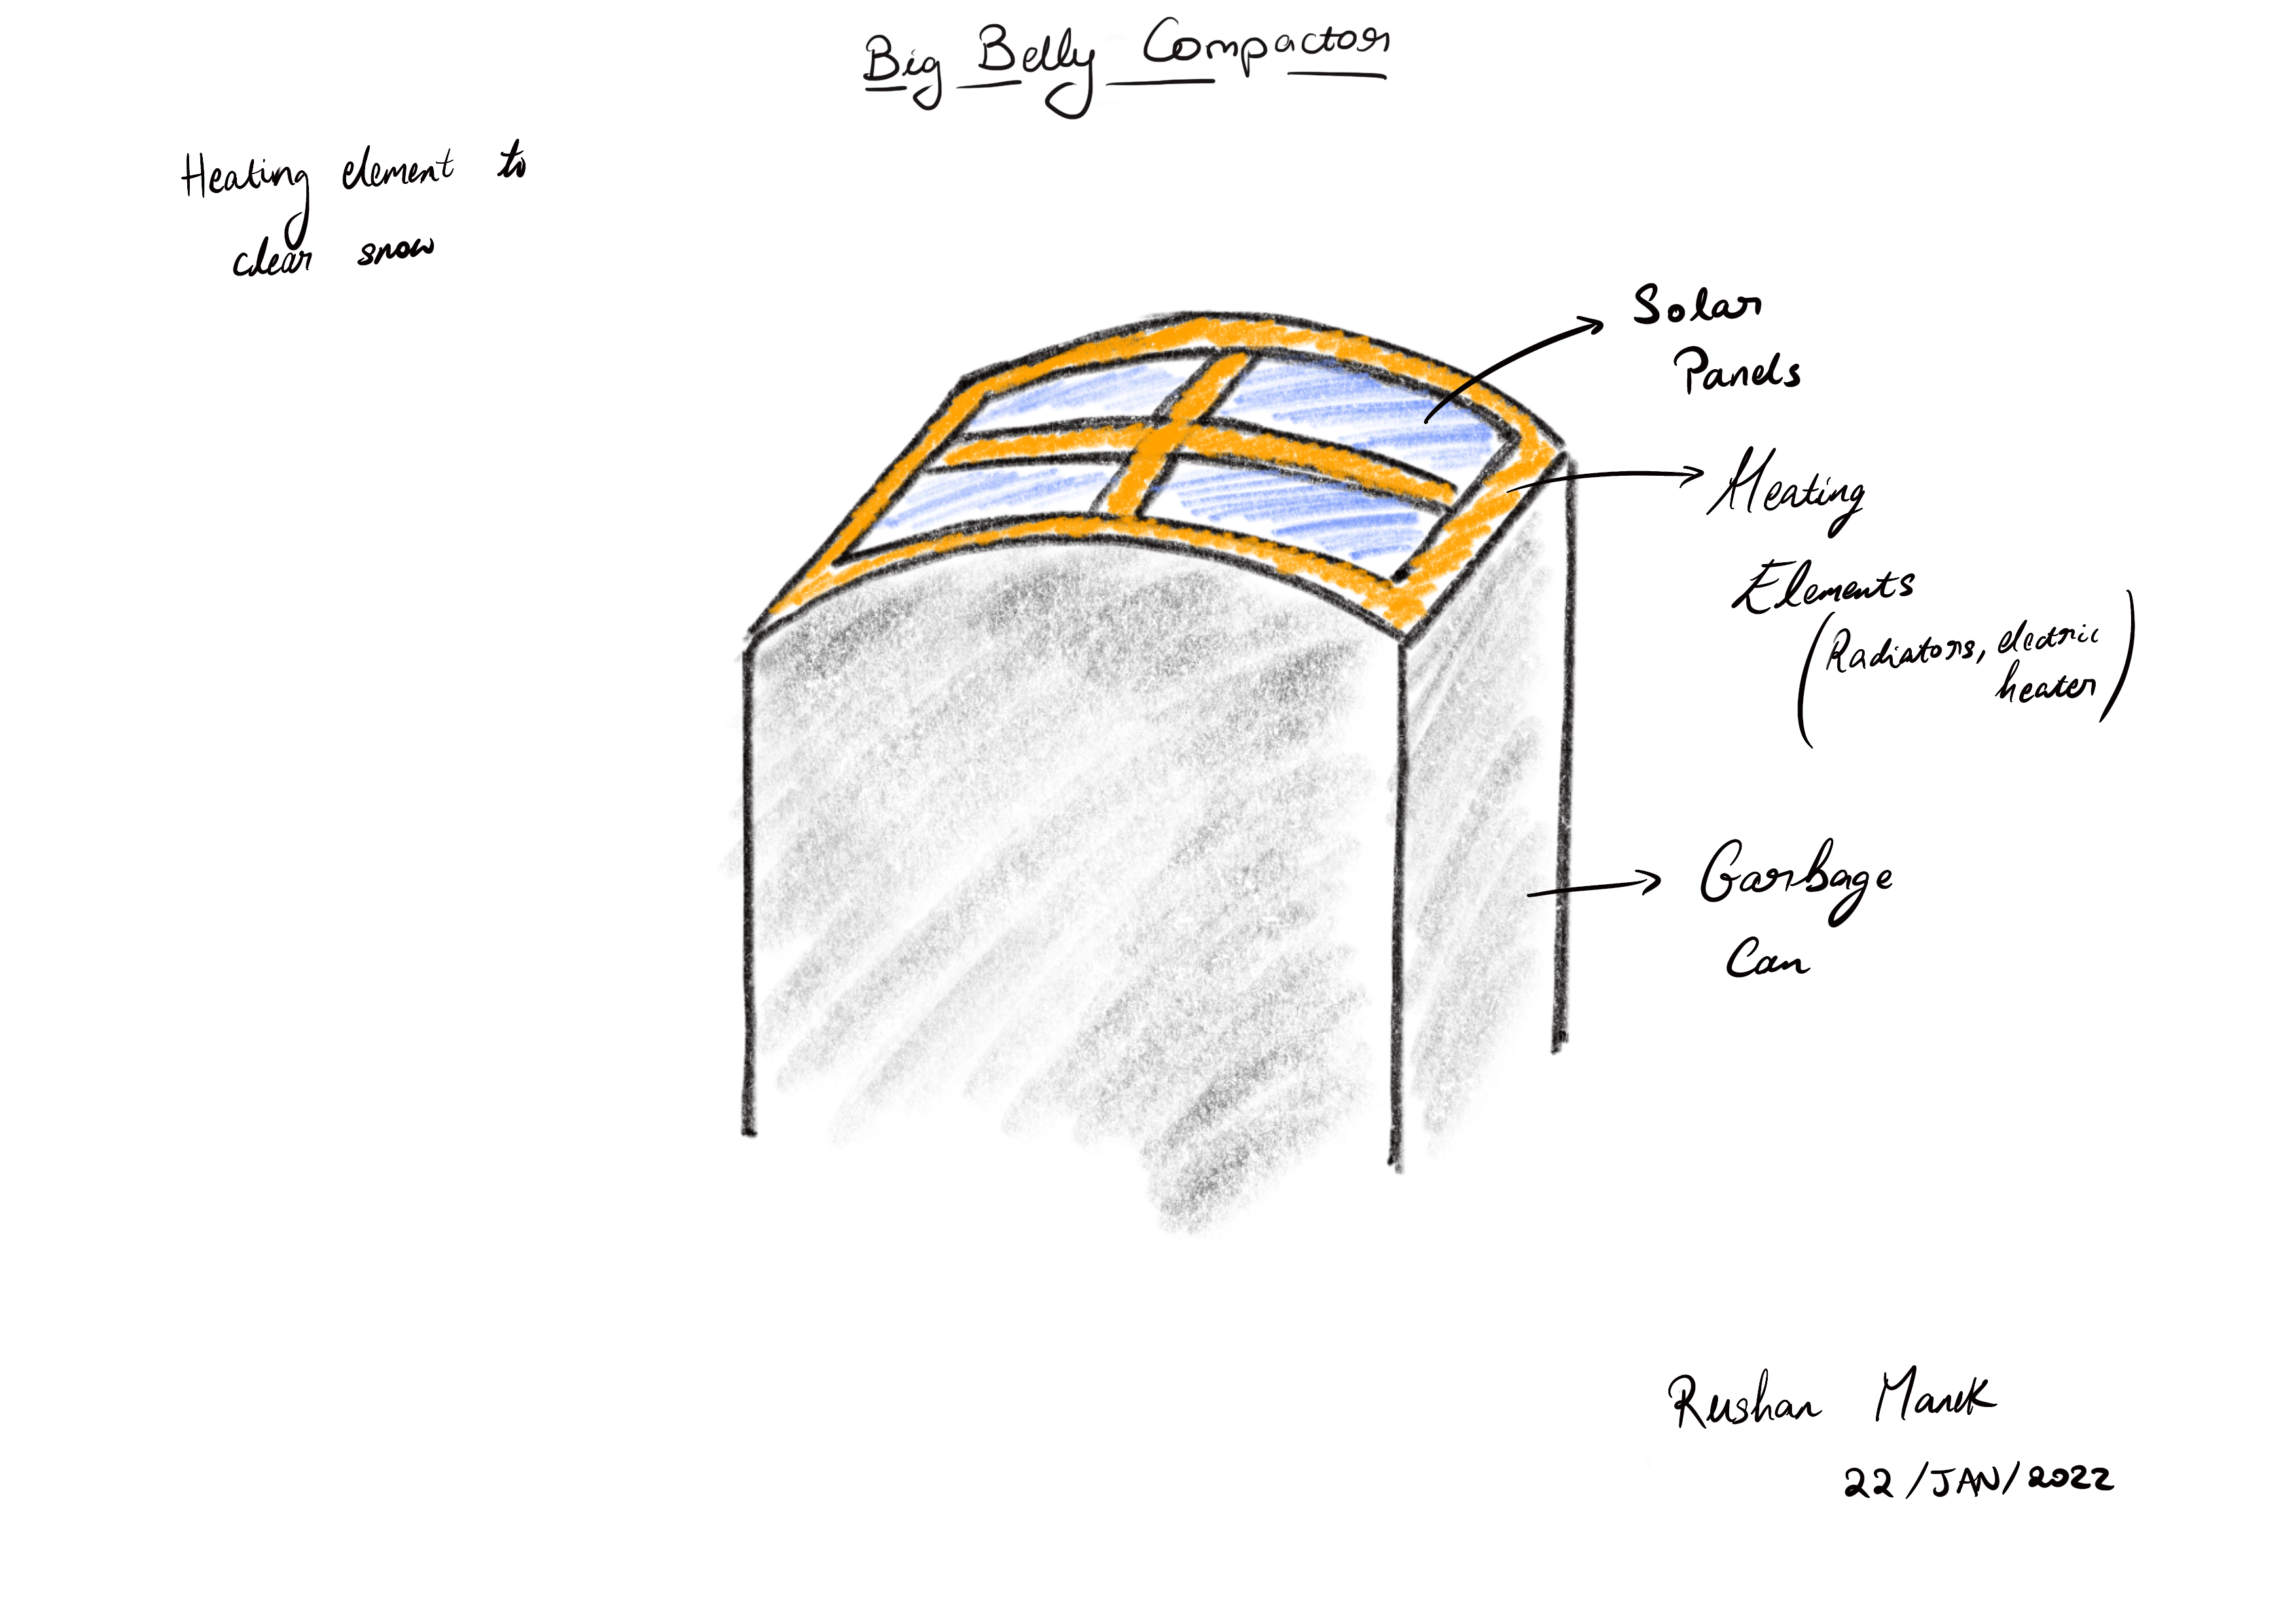 Big Belly Compactor
Heating element to
clear snow
Solar
Panels
Heating
Elements
(Radiators, electric
heater)
Garbage
Can
Rushan Manek
22/JAN/2022